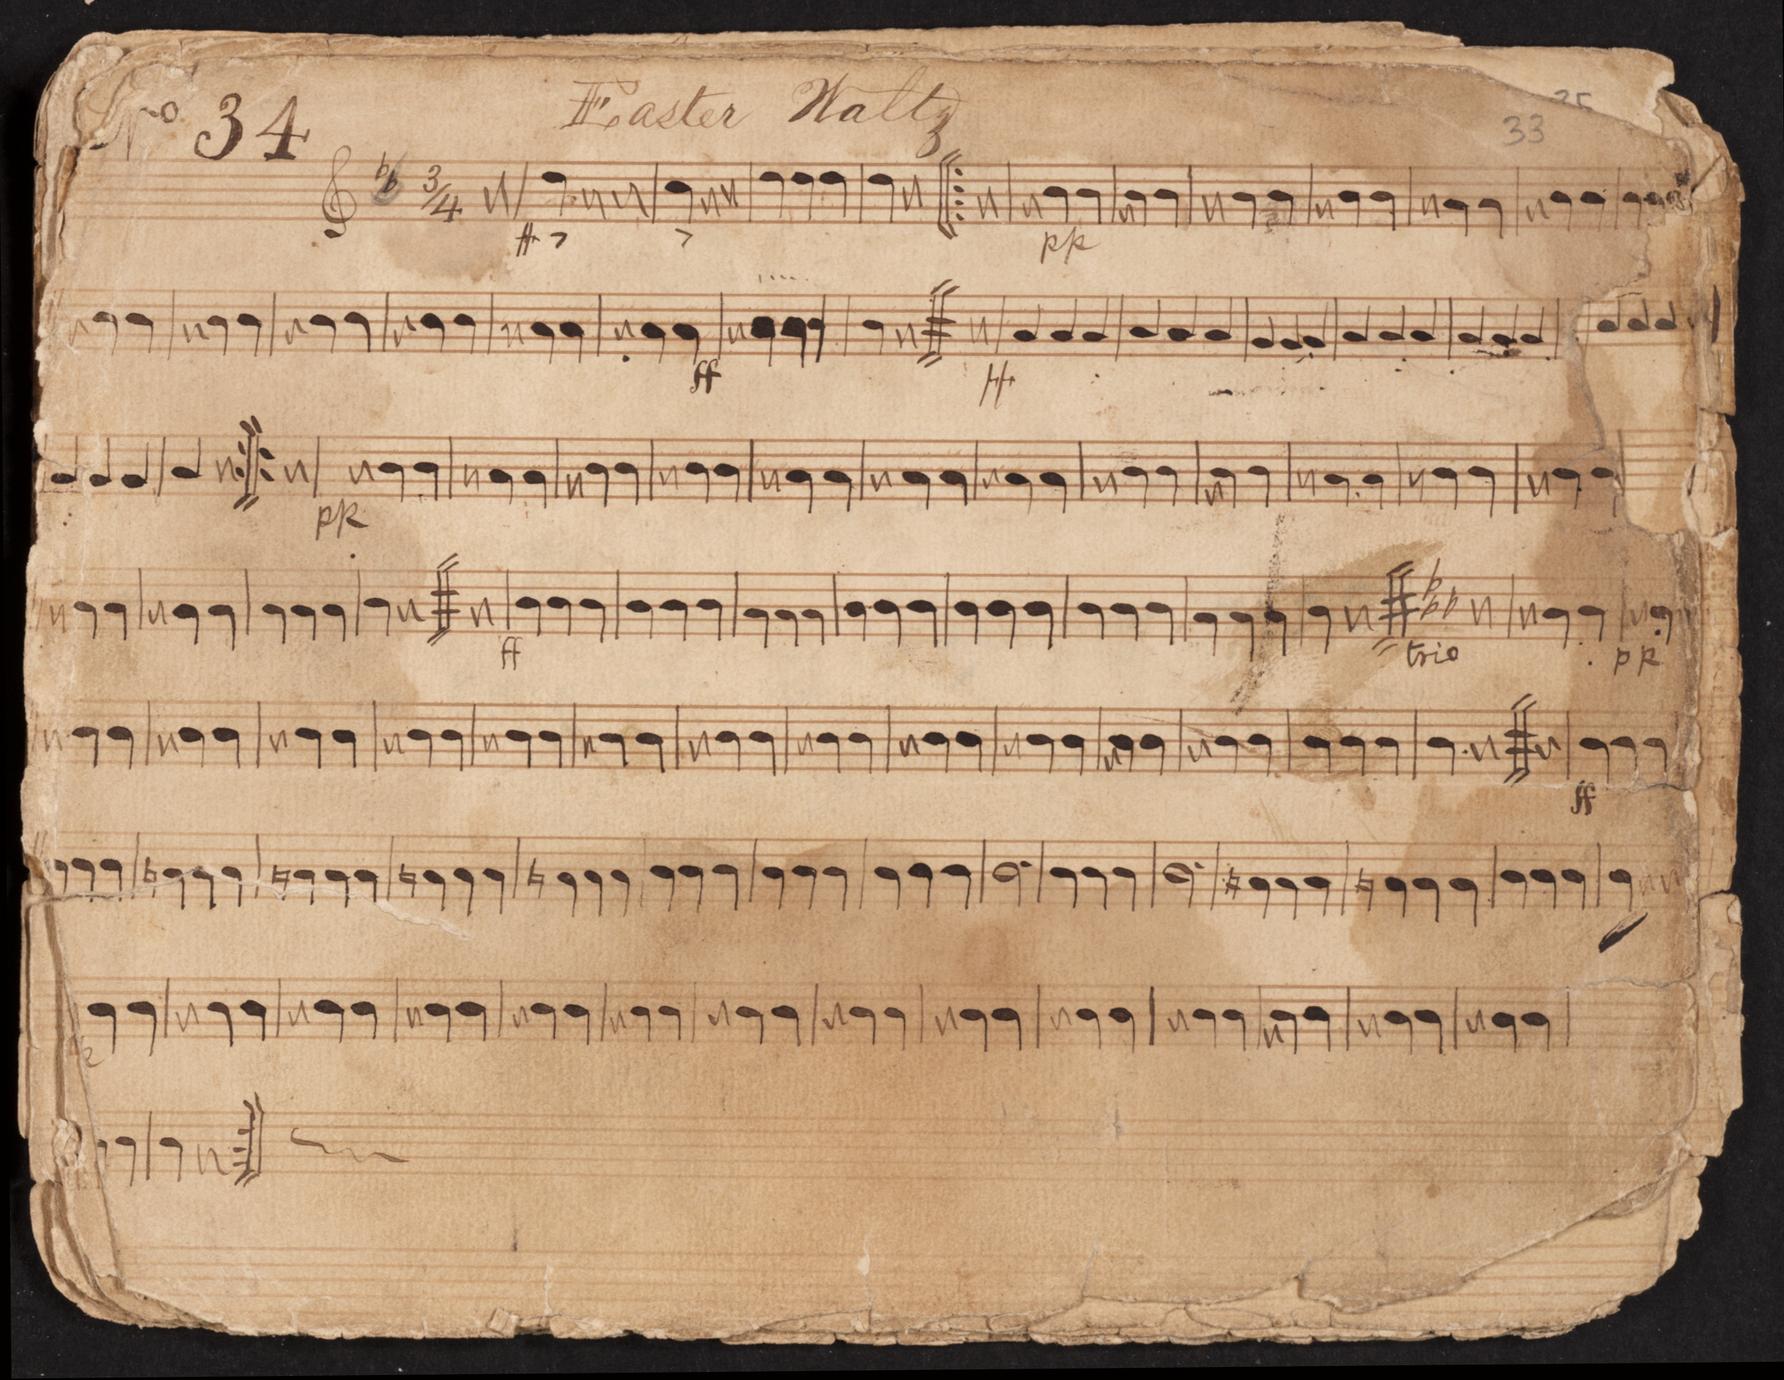 No 34 Easter Waltz 33
3/4
ff pp
ff ff
pp
ff trio pp
ff